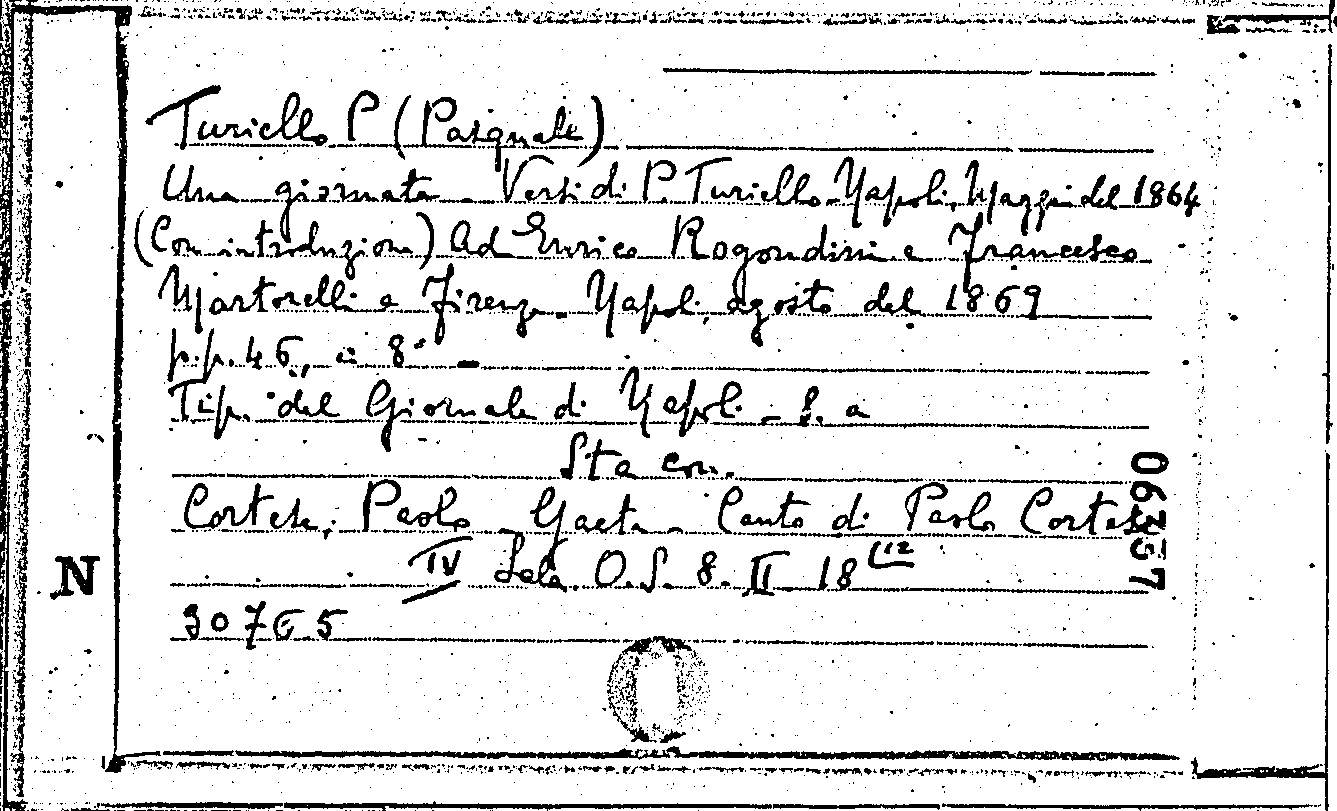 Turiello P (Pasquale)
Una giornata - Versi di P. Turiello - Napoli, Maggio del 1864
(Con introduzione) ad Enrico Rogondini e Francesco
Martorelli a Firenze - Napoli, agosto del 1869
p.p. 46, in 8° -
Tip. del Giornale di Napoli - s. a
Sta con.
Cortese, Paolo - Gaeta - Canto di Paolo Cortese
IV Sala O.S. 8. II 18 (12
30765
N